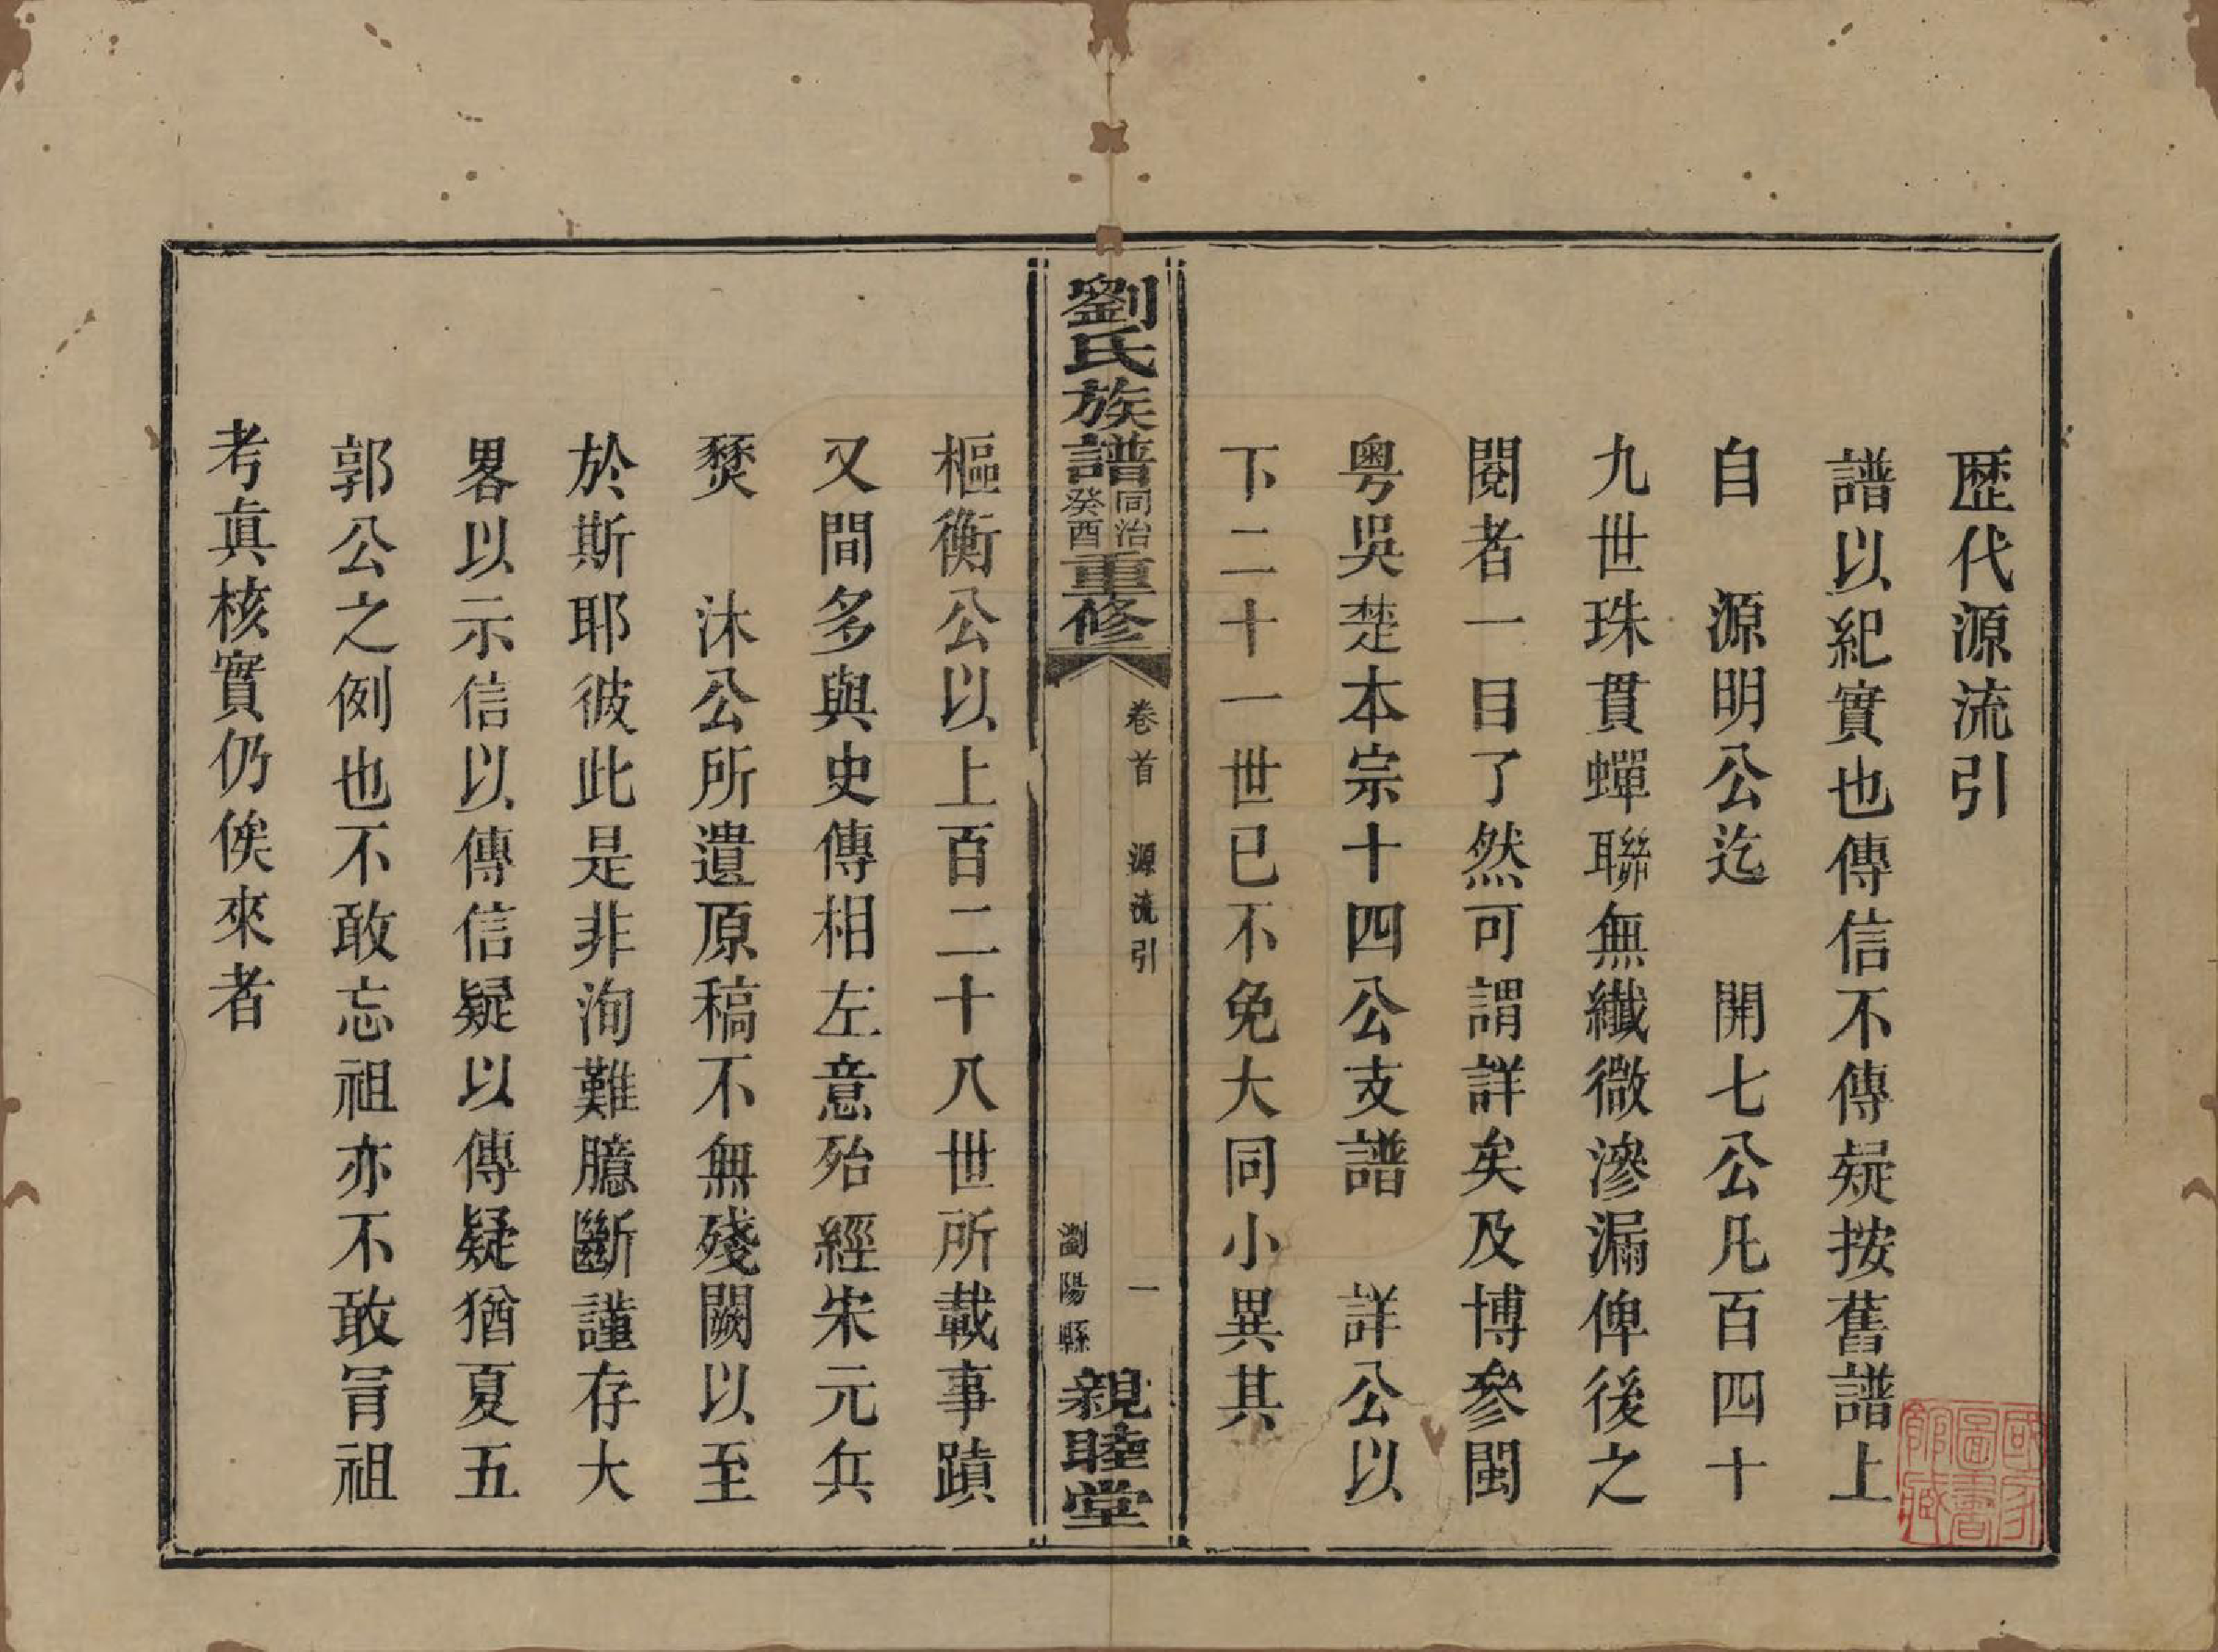 歷代源流引
譜以紀實也傳信不傳疑按舊譜上
自　源明公迄　開七公凡百四十
九世珠貫蟬聯無纖微滲漏俾後之
閱者一目了然可謂詳矣及博參閩
粤吳楚本宗十四公支譜　詳公以
下二十一世已不免大同小異其
劉氏族譜同治癸酉重修
卷首　源流引　一
瀏陽縣親睦堂
樞衡公以上百二十八世所載事蹟
又間多與史傳相左意殆經宋元兵
燹　沐公所遺原稿不無殘闕以至
於斯耶彼此是非洵難臆斷謹存大
畧以示信以傳信疑以傳疑猶夏五
郭公之例也不敢忘祖亦不敢冒祖
考眞核實仍俟來者
國家圖書館藏